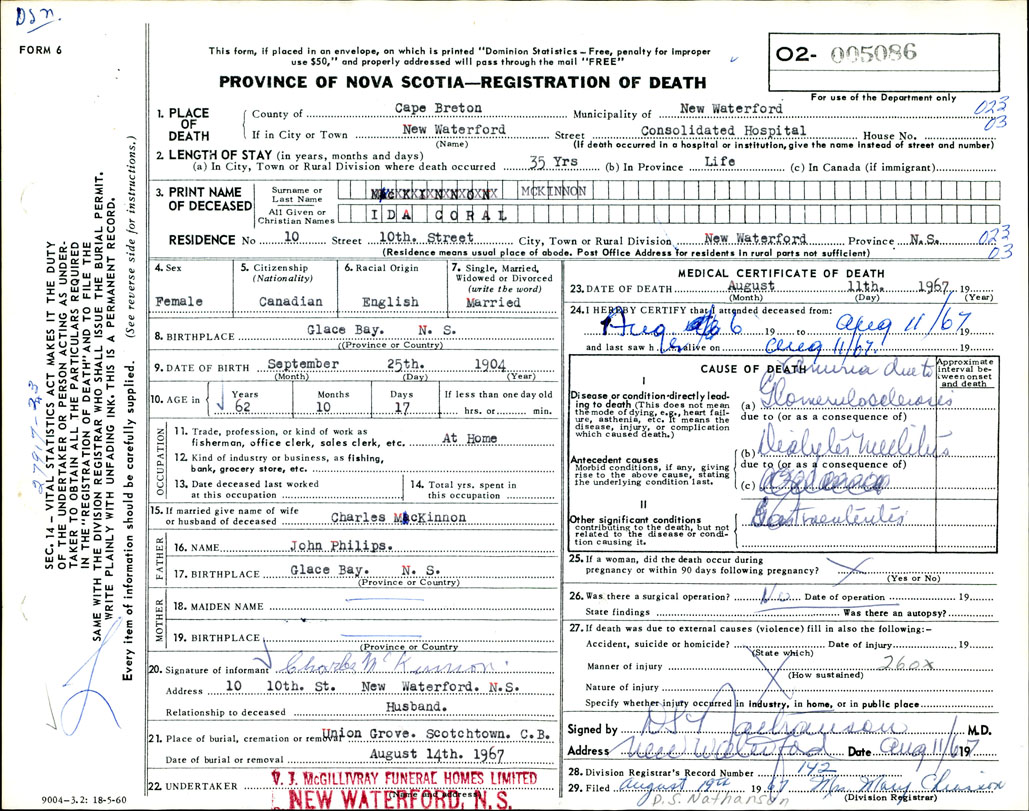 DSN.
FORM 6
This form, if placed in an envelope, on which is printed "Dominion Statistics – Free, penalty for improper
use $50," and properly addressed will pass through the mail "FREE"
PROVINCE OF NOVA SCOTIA—REGISTRATION OF DEATH
02- 005086
For use of the Department only
1. PLACE OF DEATH County of Cape Breton Municipality of New Waterford 023
If in City or Town New Waterford Street Consolidated Hospital House No. 03
(Name) (If death occurred in a hospital or institution, give the name instead of street and number)
2. LENGTH OF STAY (in years, months and days)
(a) In City, Town or Rural Division where death occurred 35 Yrs (b) In Province Life (c) In Canada (if immigrant)
3. PRINT NAME OF DECEASED Surname or Last Name MCKINNON
All Given or Christian Names IDA CORAL
RESIDENCE No 10 Street 10th. Street City, Town or Rural Division New Waterford Province N.S. 023
03
(Residence means usual place of abode. Post Office Address for residents in rural parts not sufficient)
4. Sex Female
5. Citizenship (Nationality) Canadian
6. Racial Origin English
7. Single, Married, Widowed or Divorced (write the word) Married
8. BIRTHPLACE Glace Bay. N. S.
((Province or Country)
9. DATE OF BIRTH September 25th. 1904
(Month) (Day) (Year)
10. AGE in Years 62 Months 10 Days 17 If less than one day old hrs. or min.
OCCUPATION
11. Trade, profession, or kind of work as fisherman, office clerk, sales clerk, etc. At Home
12. Kind of industry or business, as fishing, bank, grocery store, etc.
13. Date deceased last worked at this occupation
14. Total yrs. spent in this occupation
15. If married give name of wife or husband of deceased Charles McKinnon
FATHER
16. NAME John Philips.
17. BIRTHPLACE Glace Bay. N. S.
(Province or Country)
MOTHER
18. MAIDEN NAME
19. BIRTHPLACE
(Province or Country
20. Signature of informant Charles McKinnon
Address 10 10th. St. New Waterford. N.S.
Relationship to deceased Husband.
21. Place of burial, cremation or removal Union Grove. Scotchtown. C.B.
Date of burial or removal August 14th. 1967
22. UNDERTAKER V. J. McGILLIVRAY FUNERAL HOMES LIMITED
(Name and address)
NEW WATERFORD, N.S.
9004-3.2: 18-5-60
MEDICAL CERTIFICATE OF DEATH
23. DATE OF DEATH August 11th. 1967. 19
(Month) (Day) (Year)
24. I HEREBY CERTIFY that I attended deceased from:
Aug 6 19 to Aug 11/67 19
and last saw h er alive on Aug 11/67. 19
CAUSE OF DEATH
Approximate interval between onset and death
I
Disease or condition directly leading to death (This does not mean the mode of dying, e.g., heart failure, asthenia, etc. It means the disease, injury, or complication which caused death.)
Uremia due to
(a) Glomerulosclerosis
due to (or as a consequence of)
Antecedent causes
Morbid conditions, if any, giving rise to the above cause, stating the underlying condition last.
(b) Diabetes Mellitus
due to (or as a consequence of)
(c)
II
Other significant conditions contributing to the death, but not related to the disease or condition causing it.
Gastroenteritis
25. If a woman, did the death occur during pregnancy or within 90 days following pregnancy?
(Yes or No)
26. Was there a surgical operation? No Date of operation 19
State findings Was there an autopsy?
27. If death was due to external causes (violence) fill in also the following:–
Accident, suicide or homicide? Date of injury 19
(State which)
Manner of injury 260x
(How sustained)
Nature of injury
Specify whether injury occurred in industry, in home, or in public place
Signed by D S Nathanson M.D.
Address New Waterford Date Aug 11/67 19
28. Division Registrar's Record Number 142
29. Filed August 19th 1967 Mrs Mary Chiasson
D.S. Nathanson (Division Registrar)
SEC. 14 – VITAL STATISTICS ACT MAKES IT THE DUTY
OF THE UNDERTAKER OR PERSON ACTING AS UNDERTAKER TO OBTAIN ALL THE PARTICULARS REQUIRED
IN THE "REGISTRATION OF DEATH" AND TO FILE THE
SAME WITH THE DIVISION REGISTRAR WHO SHALL ISSUE THE BURIAL PERMIT.
WRITE PLAINLY WITH UNFADING INK. THIS IS A PERMANENT RECORD.
Every item of information should be carefully supplied. (See reverse side for instructions.)